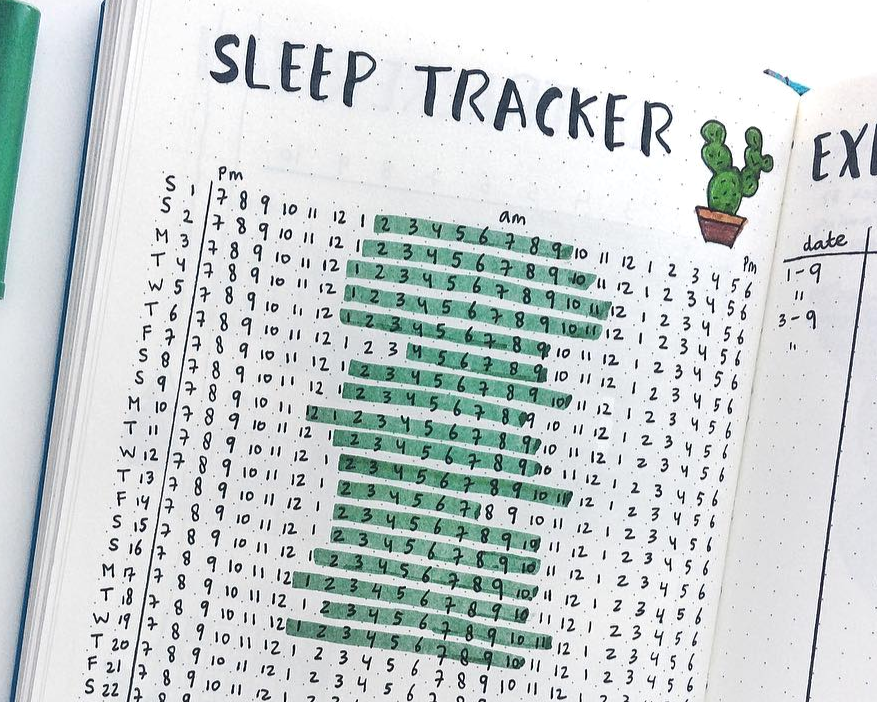 SLEEP TRACKER
EX
Pm
am
Pm
S 1 7 8 9 10 11 12 1 2 3 4 5 6 7 8 9 10 11 12 1 2 3 4 5 6
S 2 7 8 9 10 11 12 1 2 3 4 5 6 7 8 9 10 11 12 1 2 3 4 5 6
M 3 7 8 9 10 11 12 1 2 3 4 5 6 7 8 9 10 11 12 1 2 3 4 5 6
T 4 7 8 9 10 11 12 1 2 3 4 5 6 7 8 9 10 11 12 1 2 3 4 5 6
W 5 7 8 9 10 11 12 1 2 3 4 5 6 7 8 9 10 11 12 1 2 3 4 5 6
T 6 7 8 9 10 11 12 1 2 3 4 5 6 7 8 9 10 11 12 1 2 3 4 5 6
F 7 7 8 9 10 11 12 1 2 3 4 5 6 7 8 9 10 11 12 1 2 3 4 5 6
S 8 7 8 9 10 11 12 1 2 3 4 5 6 7 8 9 10 11 12 1 2 3 4 5 6
S 9 7 8 9 10 11 12 1 2 3 4 5 6 7 8 9 10 11 12 1 2 3 4 5 6
M 10 7 8 9 10 11 12 1 2 3 4 5 6 7 8 9 10 11 12 1 2 3 4 5 6
T 11 7 8 9 10 11 12 1 2 3 4 5 6 7 8 9 10 11 12 1 2 3 4 5 6
W 12 7 8 9 10 11 12 1 2 3 4 5 6 7 8 9 10 11 12 1 2 3 4 5 6
T 13 7 8 9 10 11 12 1 2 3 4 5 6 7 8 9 10 11 12 1 2 3 4 5 6
F 14 7 8 9 10 11 12 1 2 3 4 5 6 7 8 9 10 11 12 1 2 3 4 5 6
S 15 7 8 9 10 11 12 1 2 3 4 5 6 7 8 9 10 11 12 1 2 3 4 5 6
S 16 7 8 9 10 11 12 1 2 3 4 5 6 7 8 9 10 11 12 1 2 3 4 5 6
M 17 7 8 9 10 11 12 1 2 3 4 5 6 7 8 9 10 11 12 1 2 3 4 5 6
T 18 7 8 9 10 11 12 1 2 3 4 5 6 7 8 9 10 11 12 1 2 3 4 5 6
W 19 7 8 9 10 11 12 1 2 3 4 5 6 7 8 9 10 11 12 1
T 20 7 8 9 10 11 12 1 2 3 4 5 6 7
F 21 7 8 9 10 11 12 1
S 22 7
date
1-9
"
3-9
"